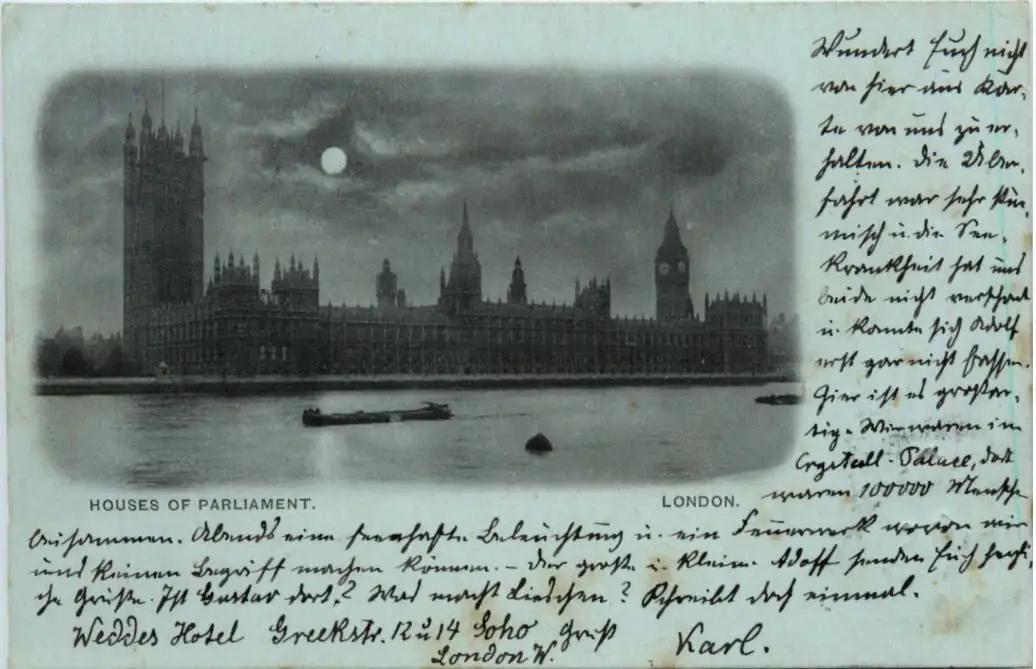 Wundert Euch nicht
von hier aus Kar-
te von uns zu er-
halten. Die Über-
fahrt war sehr stür-
misch u. die See-
krankheit hat uns
beide nicht verschont
u. konnte sich Adolf
erst gar nicht fassen.
Hier ist es großar-
tig. Wir waren im
Crystall-Palace, dort
waren 100000 Mensche
HOUSES OF PARLIAMENT.
LONDON.
beisammen. Abends eine feenhafte Beleuchtung u. ein Feuerwerk wovon wir
uns keinen Begriff machen können. – Der große u. kleine Adolf senden Euch herzli-
che Grüße. Ist Gustav dort? Was macht Lieschen? Schreibt doch einmal.
Weddes Hotel Greekstr. 12 u 14 Soho Gruß
London W. Karl.